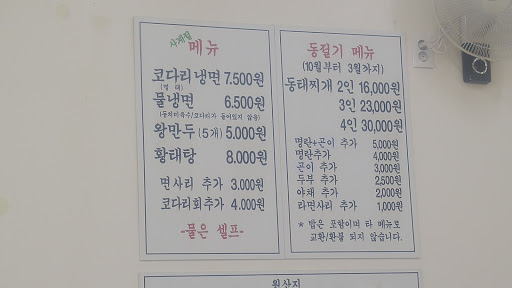 사계절
메뉴
코다리냉면 7.500원
(명태)
물냉면 6.500원
(동치미육수/코다리가 들어있지 않음)
왕만두 (5개) 5.000원
황태탕 8.000원
면사리 추가 3.000원
코다리회추가 4.000원
-물은 셀프-
동절기 메뉴
(10월부터 3월까지)
동태찌개 2인 16,000원
3인 23,000원
4인 30,000원
명란+곤이 추가 5,000원
명란추가 4,000원
곤이 추가 3,000원
두부 추가 2,500원
야채 추가 2,000원
라면사리 추가 1,000원
* 밥은 포함이며 타 메뉴로
교환/환불 되지 않습니다.
원산지